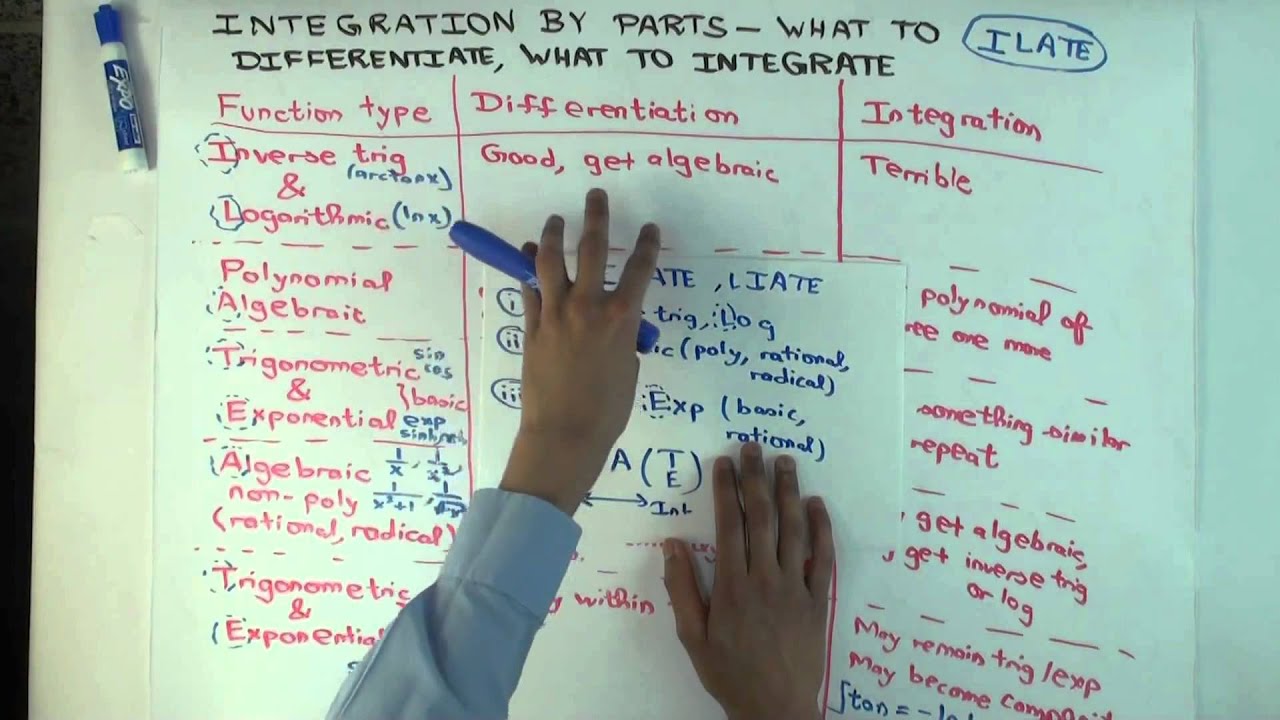 INTEGRATION BY PARTS – WHAT TO
DIFFERENTIATE, WHAT TO INTEGRATE
ILATE
EXPO
Function type
Differentiation
Integration
Inverse trig
(arctan x)
&
Logarithmic (ln x)
Good, get algebraic
Terrible
Polynomial
Algebraic
polynomial of
one more
Trigonometric sin
cos
&
} basic
Exponential exp
something similar
repeat
Algebraic 1/x, 1/x²
non-poly 1/(x²+1),
(rational, radical)
, get algebraic,
, get inverse trig
or log
Trigonometric
&
Exponential
within
May remain trig/exp
May become
∫tan = -
ATE, LIATE
(i) trig, Log
(ii) (poly, rational,
radical)
(iii) Exp (basic,
rational)
A (T
E)
Int